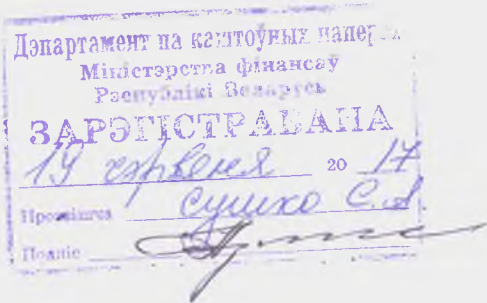 Дэпартамент па каштоўных папер
Міністэрства фінансаў
Рэспублікі Беларусь
ЗАРЭГІСТРАВАНА
19 чэрвеня 20 17
Прозвішча Сушко С.А.
Подпіс